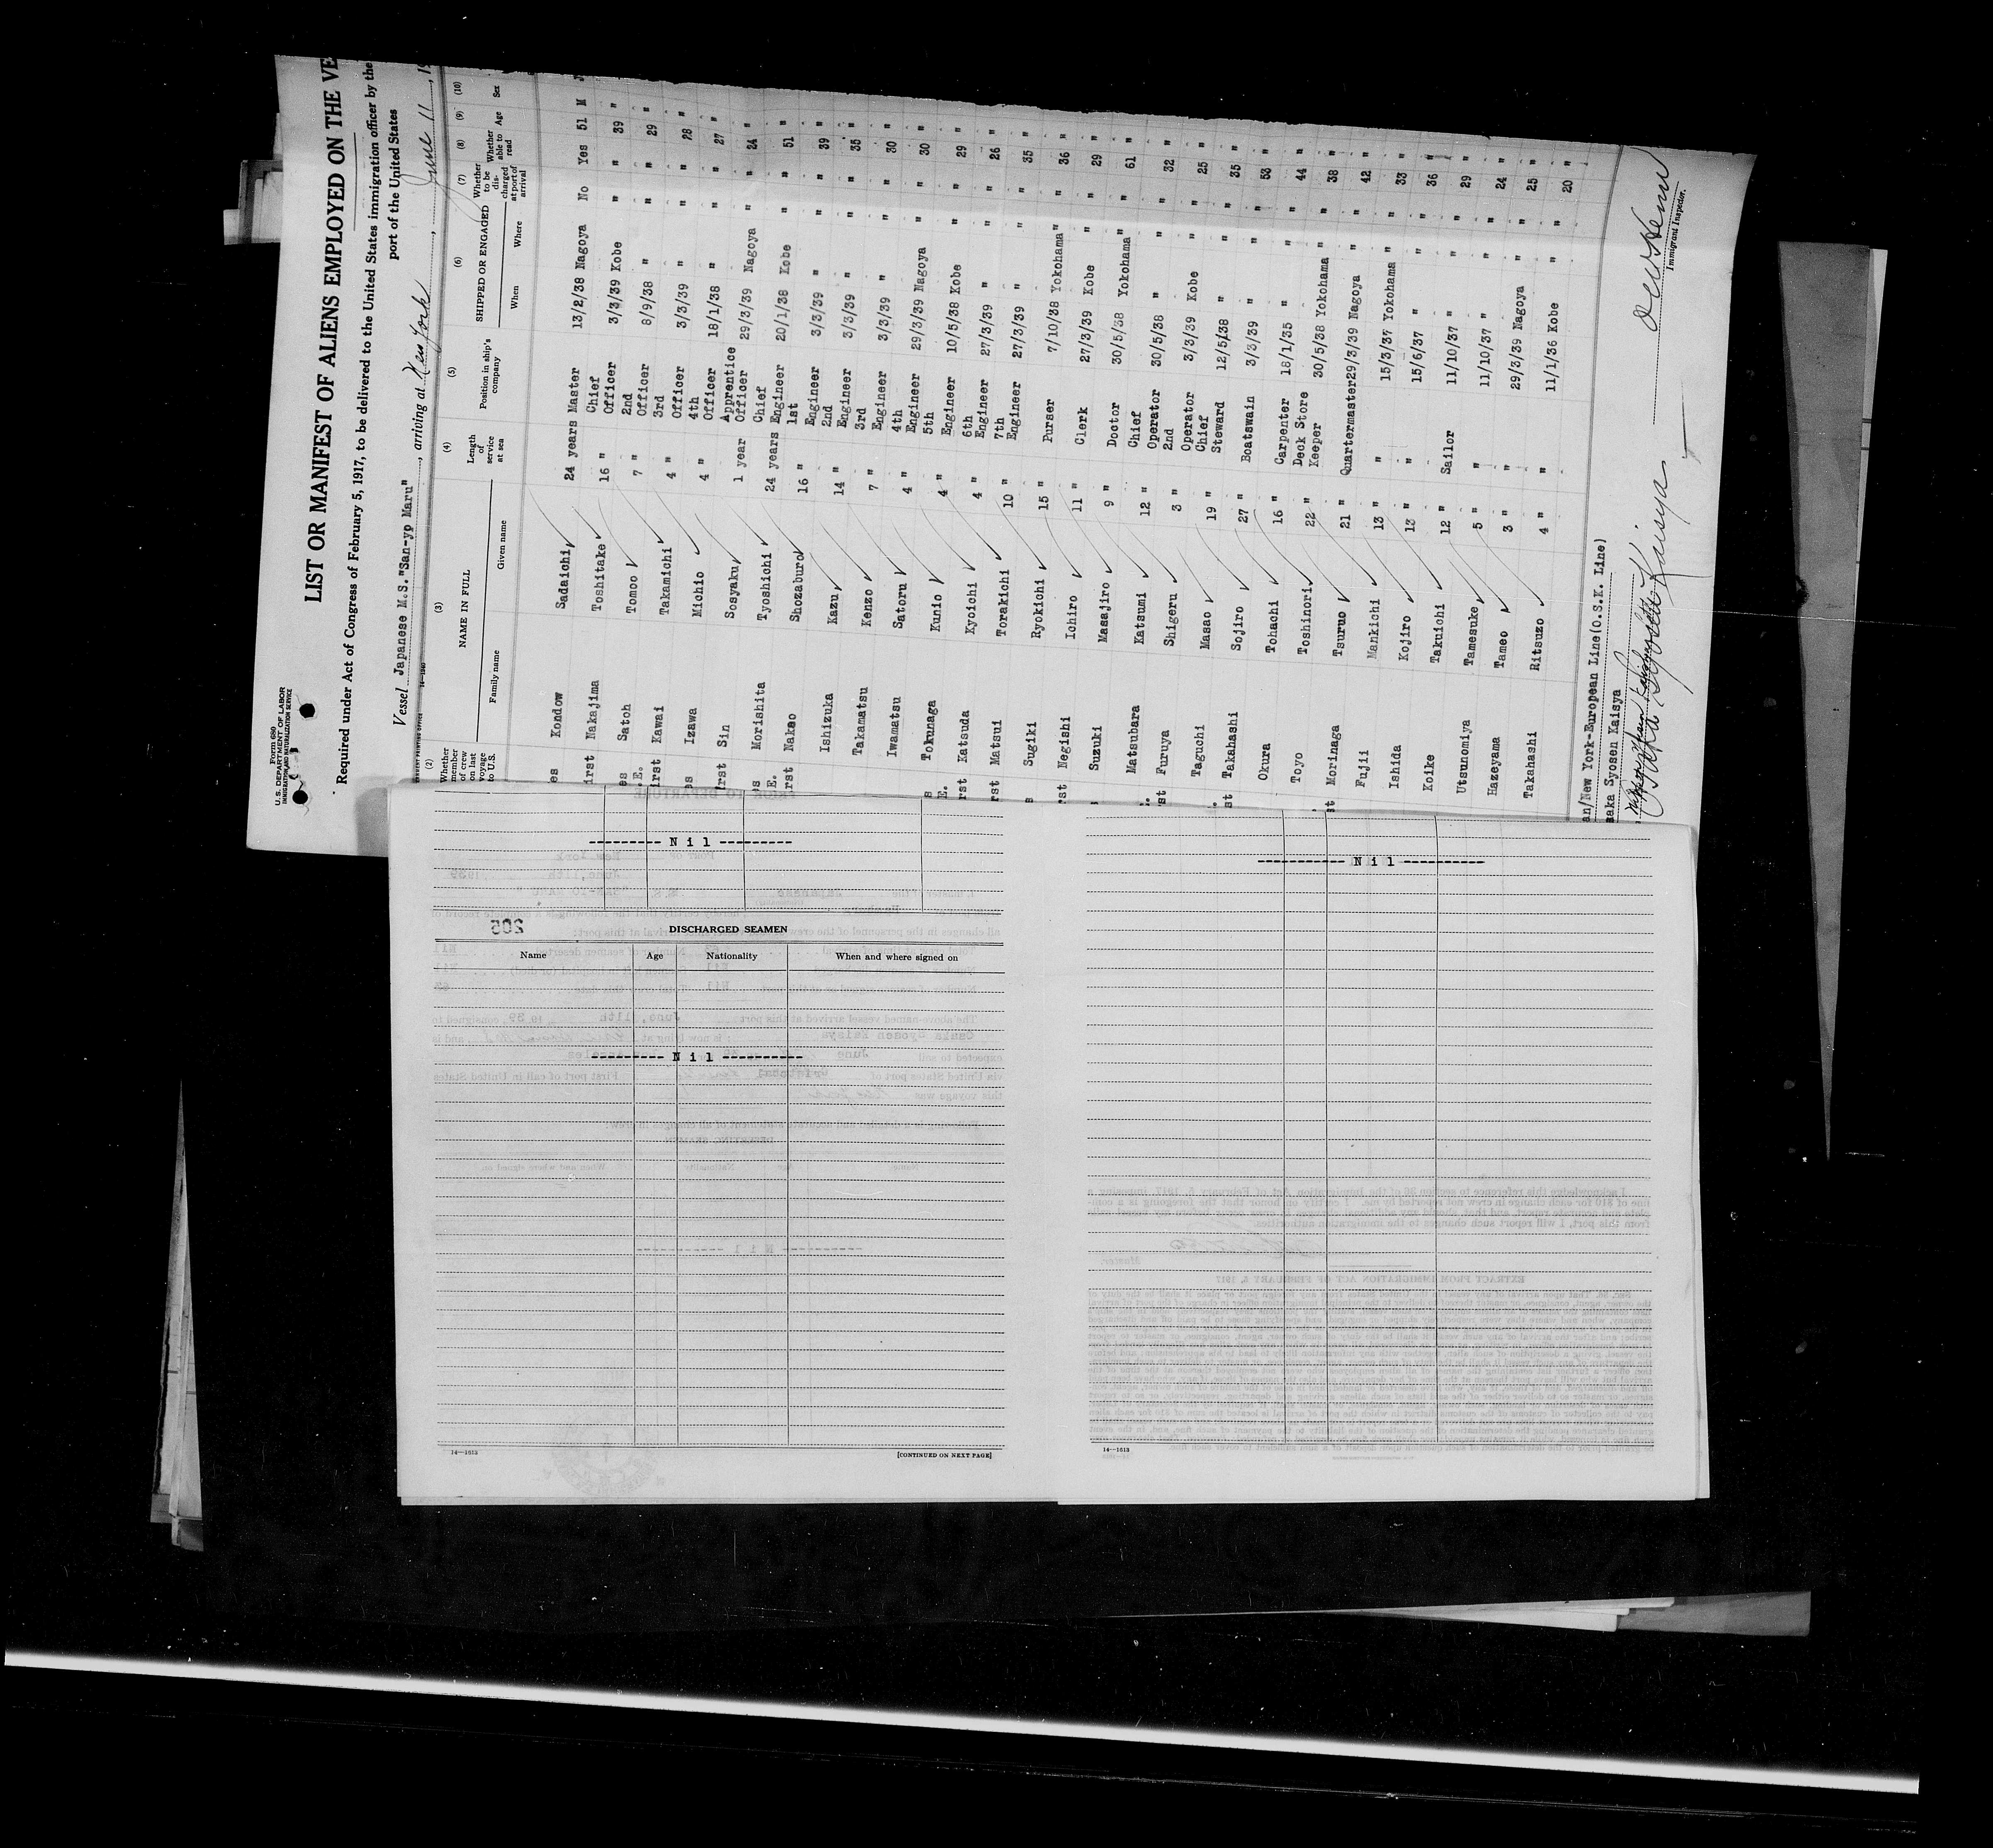 Form 689
U.S. DEPARTMENT OF LABOR
IMMIGRATION AND NATURALIZATION SERVICE
LIST OR MANIFEST OF ALIENS EMPLOYED ON THE VE
Required under Act of Congress of February 5, 1917, to be delivered to the United States immigration officer by the
port of the United States
Vessel Japanese M.S."San-yo Maru", arriving at New York, June 11, 19
(2) (3) (4) (5) (6) (7) (8) (9) (10)
Whether member of crew on last voyage to U.S. NAME IN FULL Family name Given name Length of service at sea Position in ship's company SHIPPED OR ENGAGED When Where Whether to be discharged at port of arrival Whether able to read Age Sex
es Kondow Sadaichi 24 years Master 13/2/38 Nagoya No Yes 51 M
irst Nakajima Toshitake 16 " Chief Officer 3/3/39 Kobe " " 39 "
es Satoh Tomoo 7 " 2nd Officer 8/9/38 " " " 29 "
E. irst Kawai Takamichi 4 " 3rd Officer 3/3/39 " " " 28 "
es Izawa Michio 4 " 4th Officer 18/1/38 " " " 27 "
irst Sin Sosyaku 1 year Apprentice Officer 29/3/39 Nagoya " " 24 "
es Morishita Tyoshichi 24 years Chief Engineer 20/1/38 Kobe " " 51 "
E. irst Nakao Shozaburo 16 " 1st Engineer 3/3/39 " " " 39 "
Ishizuka Kazu 14 " 2nd Engineer 3/3/39 " " " 35 "
Takamatsu Kenzo 7 " 3rd Engineer 3/3/39 " " " 30 "
Iwamatsu Satoru 4 " 4th Engineer 29/3/39 Nagoya " " 30 "
s Tokunaga Kunio 4 " 5th Engineer 10/5/38 Kobe " " 29 "
E. rst Katsuda Kyoichi 4 " 6th Engineer 27/3/39 " " " 26 "
rst Matsui Torakichi 10 " 7th Engineer 27/3/39 " " " 35 "
s Sugiki Ryokichi 15 " Purser 7/10/38 Yokohama " " 36 "
rst Negishi Ichiro 11 " Clerk 27/3/39 Kobe " " 29 "
Suzuki Masajiro 9 " Doctor 30/5/38 Yokohama " " 61 "
Matsubara Katsumi 12 " Chief Operator 30/5/38 " " " 32 "
st Furuya Shigeru 3 " 2nd Operator 3/3/39 Kobe " " 25 "
Taguchi Masao 19 " Chief Steward 12/5/38 " " " 35 "
st Takahashi Sojiro 27 " Boatswain 3/3/39 " " " 53 "
Okura Tohachi 16 " Carpenter 18/1/35 " " " 44 "
Toyo Toshinori 22 " Deck Store Keeper 30/5/38 Yokohama " " 38 "
st Morinaga Tsuruo 21 " Quartermaster 29/3/39 Nagoya " " 42 "
Fujii Mankichi 13 " " 15/3/37 Yokohama " " 33 "
Ishida Kojiro 13 " " 15/6/37 " " " 36 "
Koike Takuichi 12 " Sailor 11/10/37 " " " 29 "
Utsunomiya Tamesuke 5 " " 11/10/37 " " " 24 "
Hazeyama Tameo 3 " " 29/3/39 Nagoya " " 25 "
Takahashi Ritsuzo 4 " " 11/1/36 Kobe " " 20 "
an/New York-European Line(O.S.K. Line)
aka Syosen Kaisya
Osaka Syosen Kaisya
Immigrant Inspector.
--------- N i l ---------
205
DISCHARGED SEAMEN
Name Age Nationality When and where signed on
--------- N i l ---------
14—1613
[CONTINUED ON NEXT PAGE]
--------- N i l ---------
14—1613